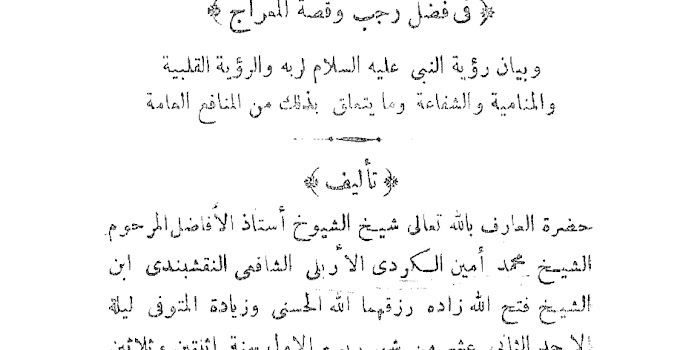 ﴿ فى فضل رجب وقصة المعراج ﴾
وبيان رؤية النبي عليه السلام لربه والرؤية القلبية
والمنامية والشفاعة وما يتعلق بذلك من المنافع العامة
﴿ تأليف ﴾
حضرة العارف بالله تعالى شيخ الشيوخ أستاذ الأفاضل المرحوم
الشيخ محمد أمين الكردى الأربلى الشافعى النقشبندى ابن
الشيخ فتح الله زاده رزقهما الله الحسنى وزيادة المتوفى ليلة
الاحد الثانى عشر من شهر ربيع الاول سنة اثنتين وثلاثين